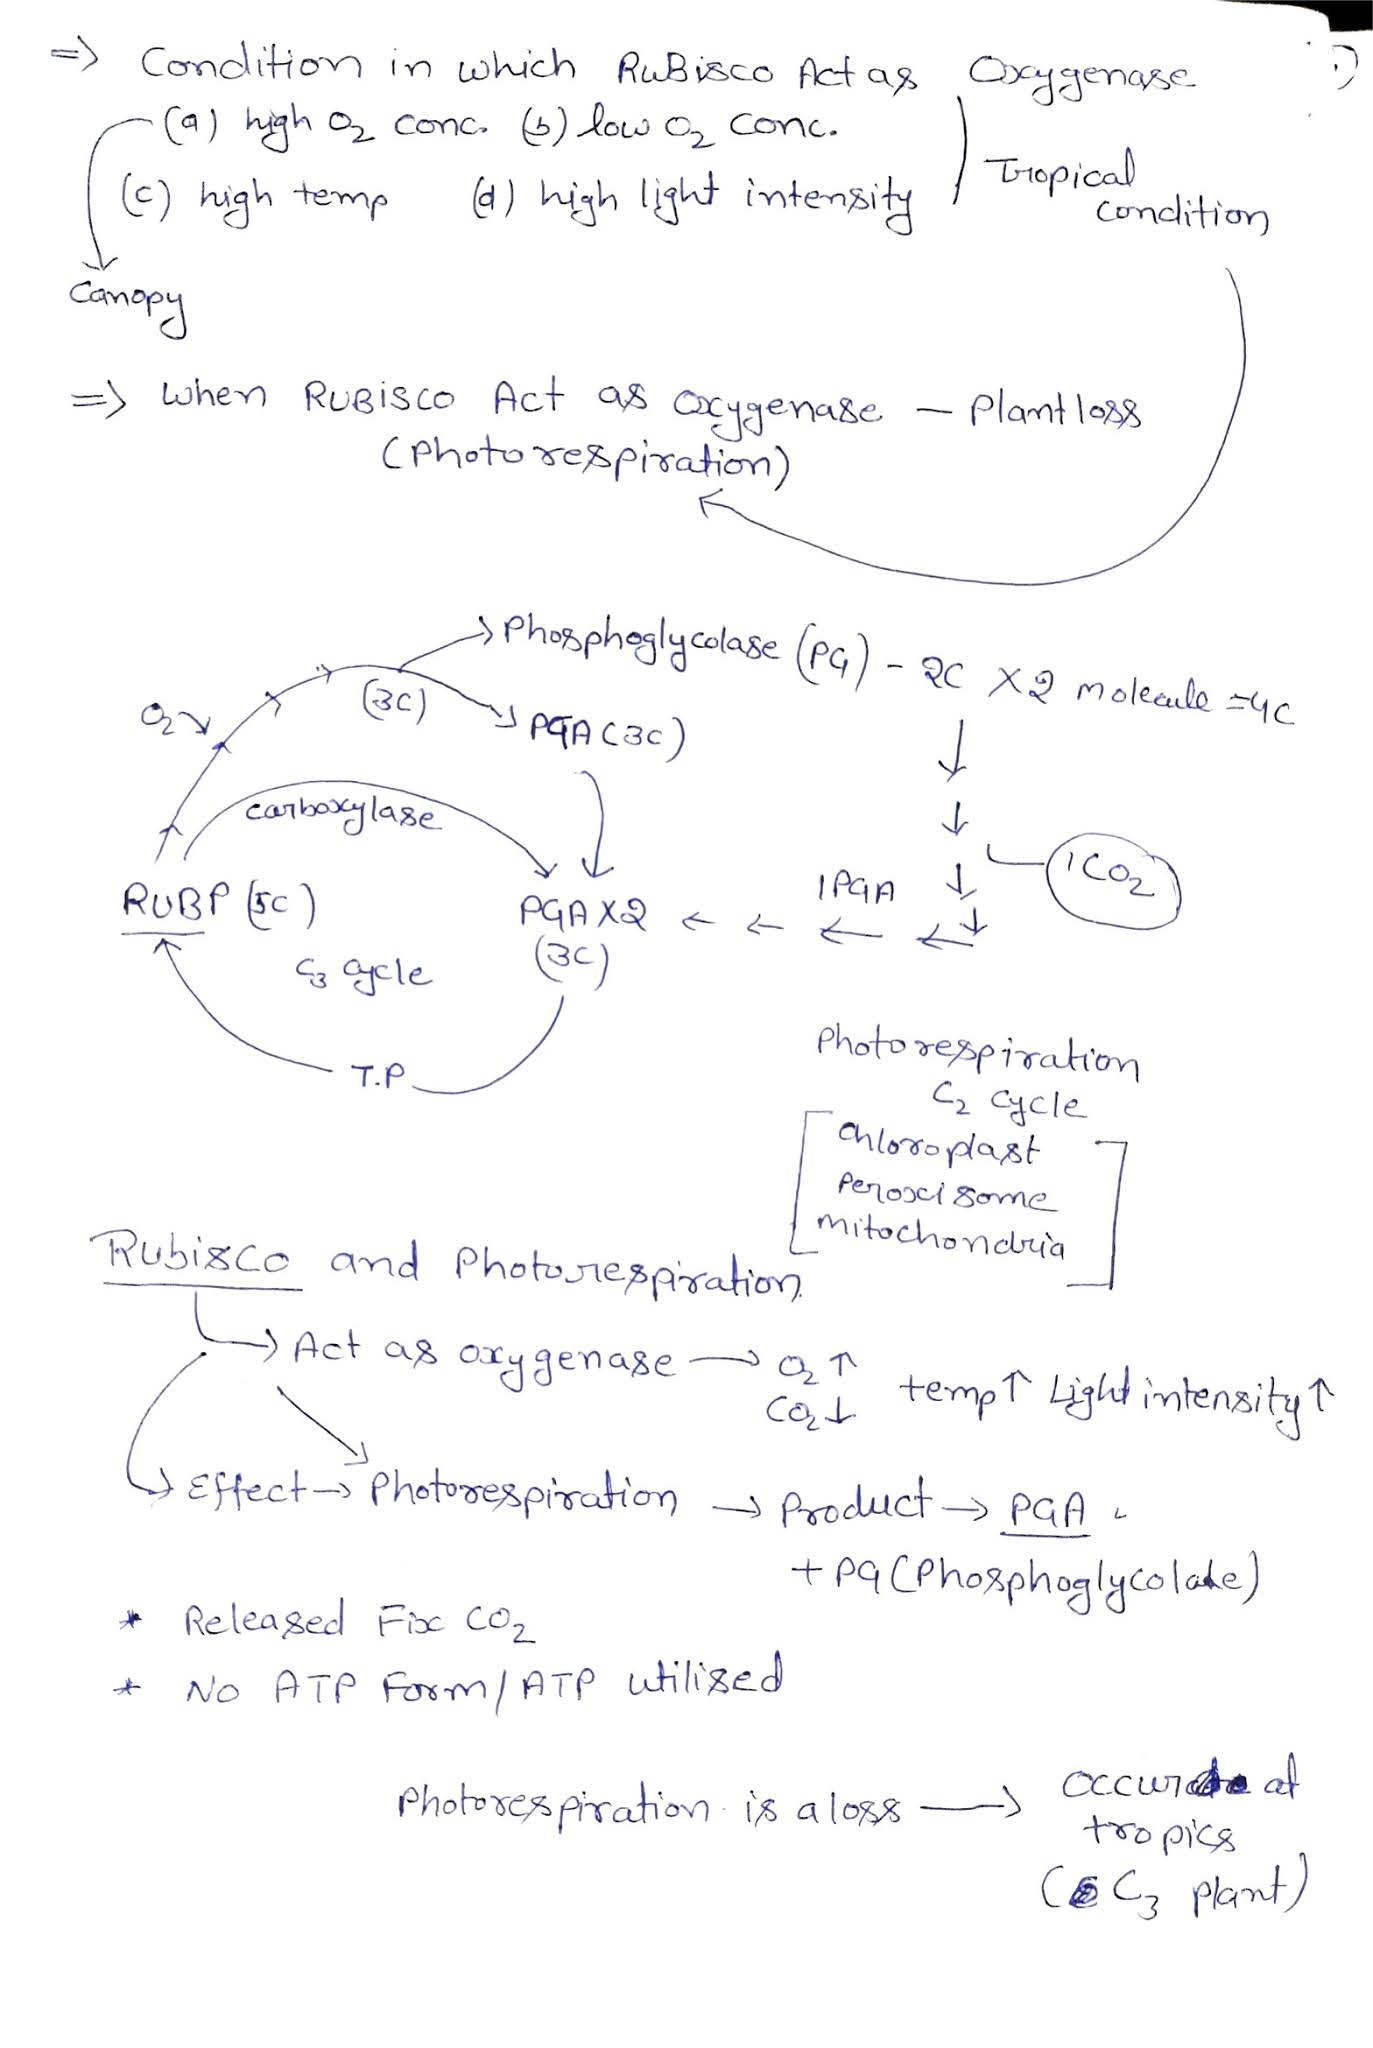 => Condition in which RuBisCO Act as Oxygenase
(a) high O2 conc. (b) low O2 conc.
(c) high temp (d) high light intensity
Tropical
condition
Canopy
=> When RUBISCO Act as Oxygenase – Plant loss
(Photorespiration)
Phosphoglycolase (PG) – 2C X2 molecule = 4C
O2
(3C)
PGA (3C)
carboxylase
1CO2
1PGA
RUBP (5C)
PGA X2
(3C)
C3 cycle
T.P
Photorespiration
C2 cycle
chloroplast
Peroxisome
mitochondria
Rubisco and Photorespiration
Act as oxygenase → O2 ↑
CO2 ↓
temp ↑ Light intensity ↑
Effect → Photorespiration → Product → PGA
+ PG (Phosphoglycolate)
* Released Fix CO2
* NO ATP Form/ATP utilised
Photorespiration is a loss → occur at
tropics
(C3 plant)